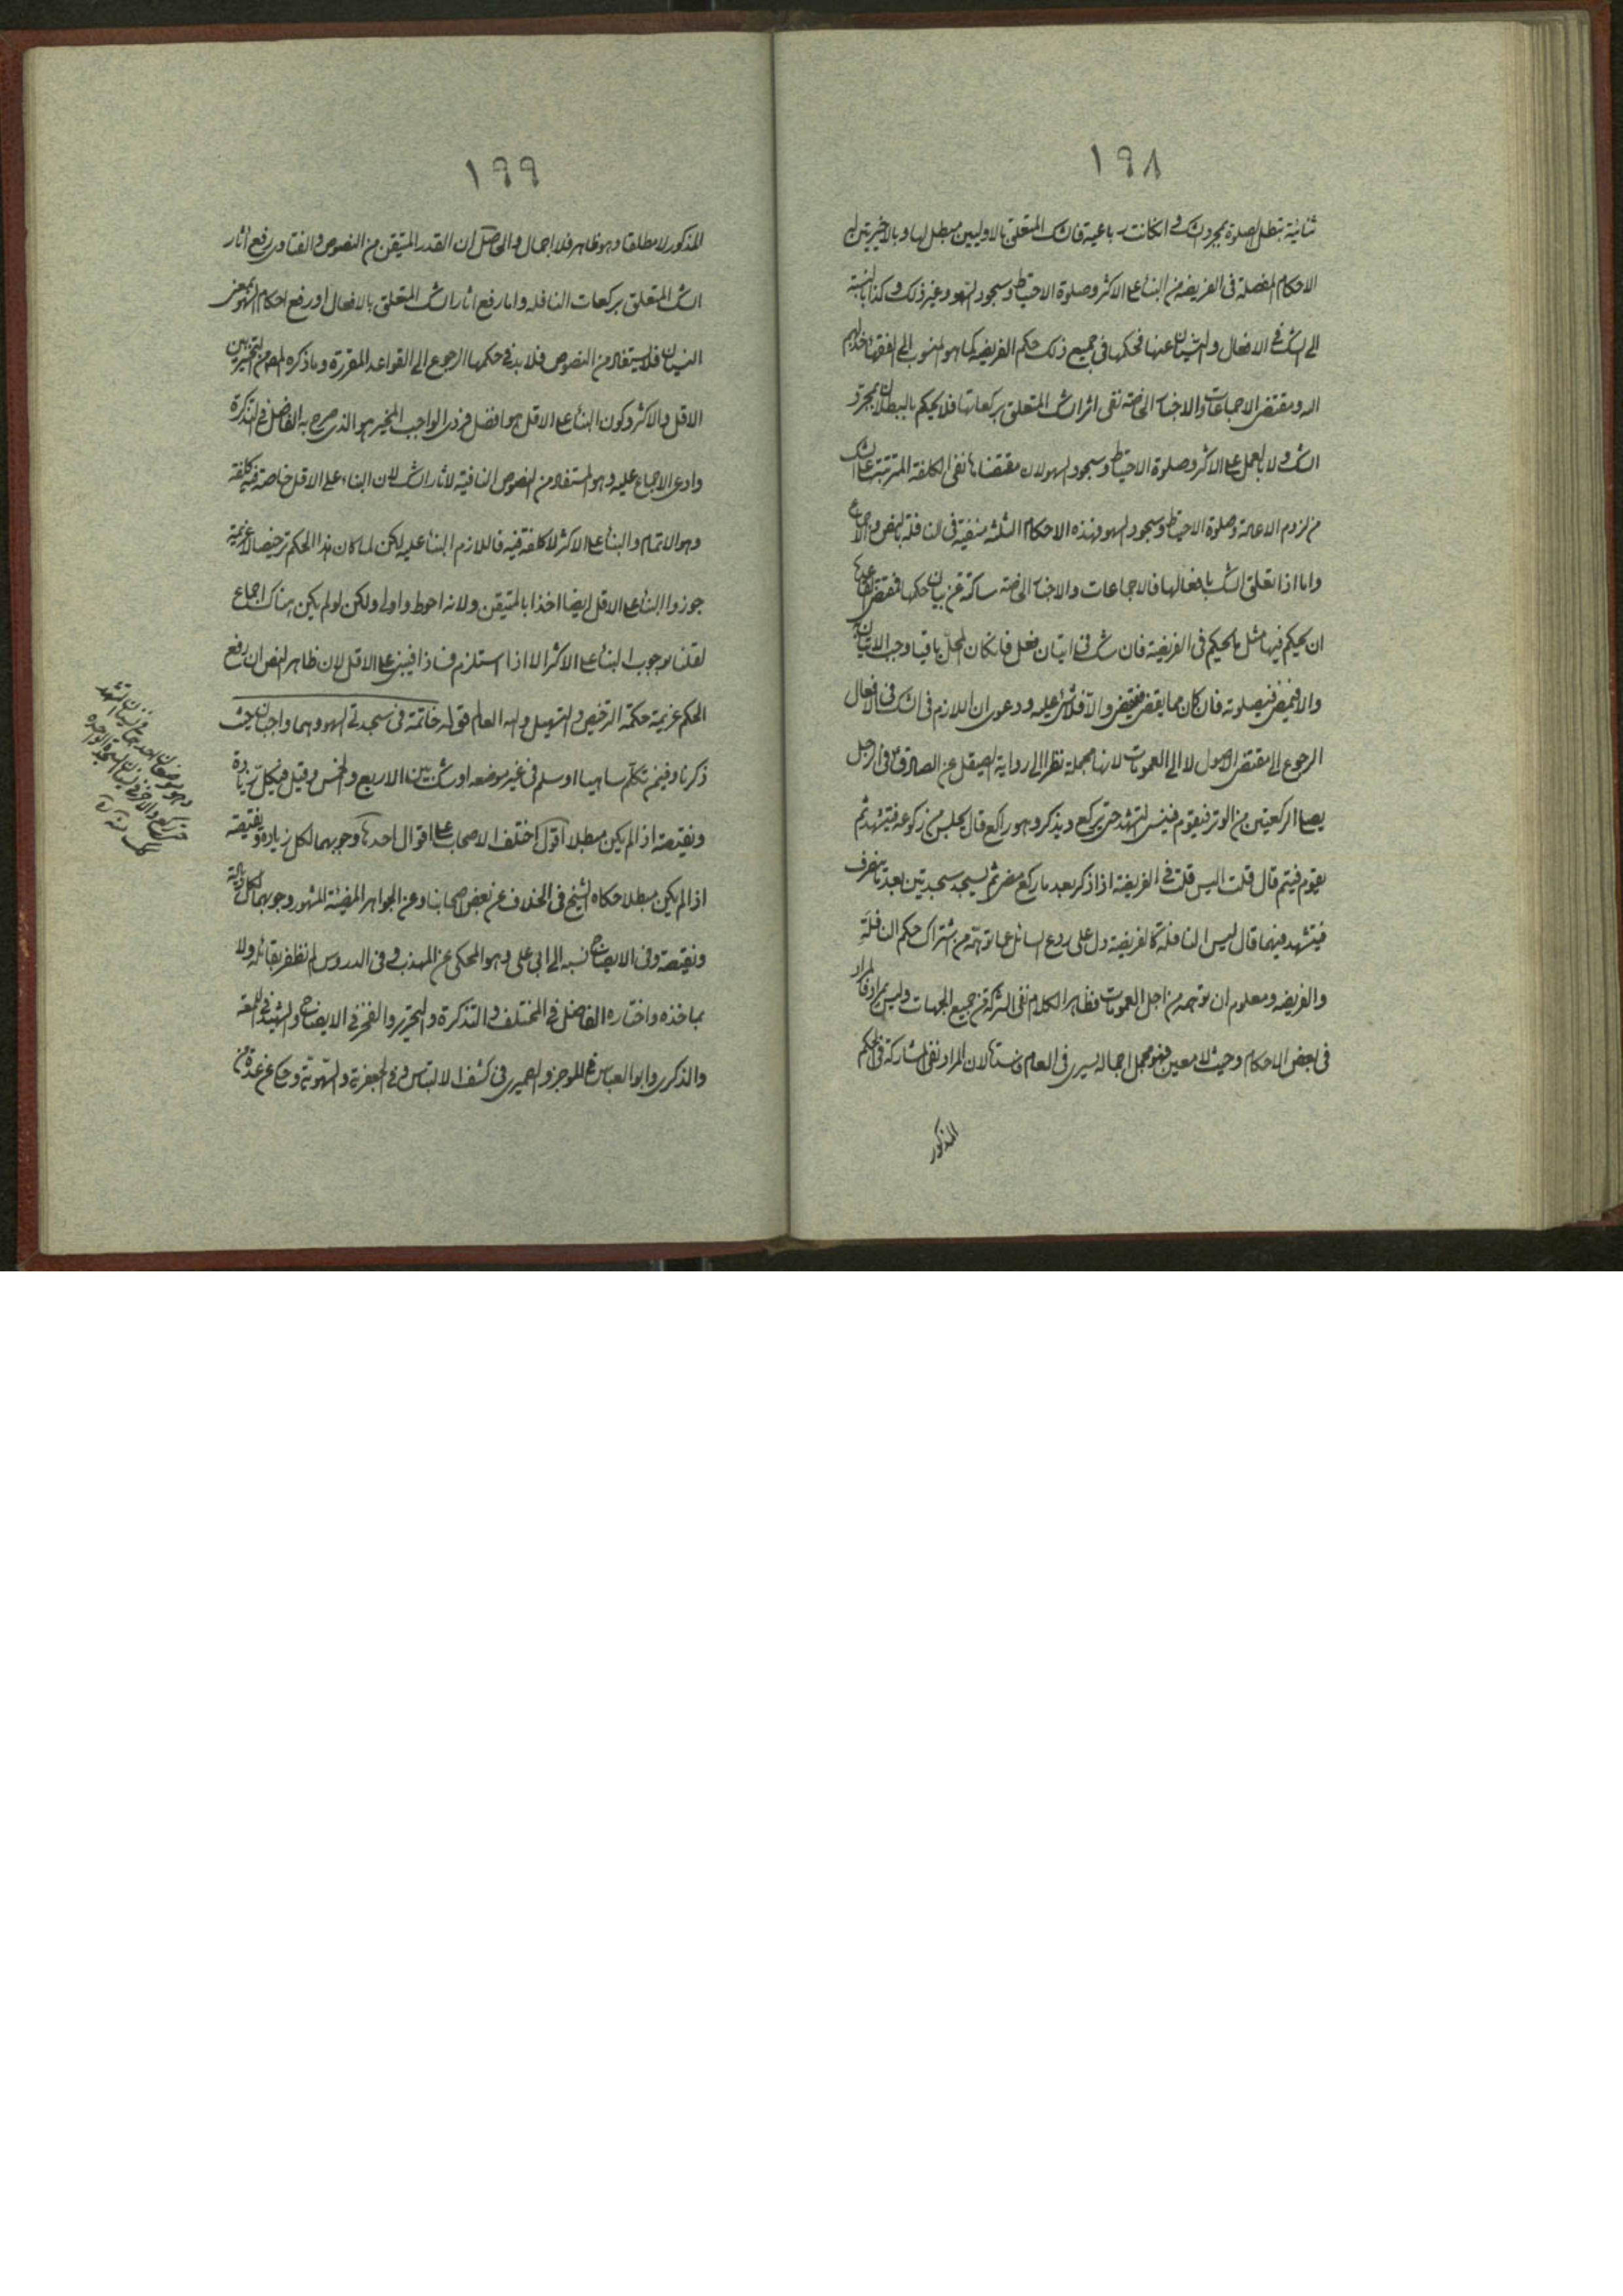 ١٩٨
ثنائية بتطل الصلوة بمجرد الشك وانكانت رباعية فالشك المتعلق بالاوليين مبطل لها وبالاخيرتين له
الاحكام المفصلة فى الفريضة من البناء على الاكثر وصلوة الاحتياط وسجود السهو وغير ذلك وكذا بالنسبة
الى الشك فى الافعال والنسيان عنها فحكمها فى جميع ذلك حكم الفريضة كما هو المنسوب الى الفقهاء
الله ومقتضى الاجماعات والاخبار الخاصة نفى اثر الشك المتعلق بركعاتها فلا يحكم بالبطلان بمجرد
الشك ولا بالعمل على الاكثر وصلوة الاحتياط وسجود السهو لان مقتضاها نفى الكلفة المترتبة على الشك
من لزوم الاعادة وصلوة الاحتياط وسجود السهو فهذه الاحكام الثلثة منفية فى النافلة بالنص والاجماع
واما اذا تعلق الشك بافعالها فالاجماعات والاخبار الخاصة ساكتة عن بيان حكمها فمقتضى القاعدة
ان يحكم فيها مثل ما يحكم فى الفريضة فان شك فى اتيان فعل فانكان المحل باقيا وجب الاتيان به
والا فيمضى فى صلوته فان كان مما يقضى فيقضى والا فلا شئ عليه ودعوى ان اللازم فى الشك فى الافعال
الرجوع الى مقتضى الاصول لا الى العمومات لانها مجملة نظرا الى رواية الصيقل عن الصادق ع فى الرجل
يصلى الركعتين من الوتر فيقوم فينسى التشهد حتى يركع ويذكر وهو راكع قال يجلس من ركوعه فيتشهد ثم
يقوم فيتم قال قلت اليس قلت فى الفريضة اذا ذكر بعد ما ركع مضى ثم يسجد سجدتين بعد ما ينصرف
فيتشهد فيهما قال ليس النافلة كالفريضة دل على ردع السائل عما توهمه من اشتراك حكم النافلة
والفريضة ومعلوم ان توهمه من اجل العمومات فظاهر الكلام نفى الشركة من جميع الجهات وليس بمراد فالمراد
فى بعض الاحكام وحيث لا معين فهو مجمل اجماله يسرى فى العام لان المراد نفى المشاركة فى الحكم
المذكور
١٩٩
المذكور لا مطلقا وهو ظاهر فلا اجمال والحاصل ان القدر المتيقن من النصوص والفتاوى رفع اثار
الشك المتعلق بركعات النافلة واما رفع اثار الشك المتعلق بالافعال او رفع احكام السهو بمعنى
النسيان فلا يستفاد من النصوص فلا بد فى حكمها الرجوع الى القواعد المقررة وما ذكره المص من التخيير بين
الاقل والاكثر وكون البناء على الاقل هو افضل فردى الواجب المخير هو الذى صرح به الفاضل فى التذكرة
وادعى الاجماع عليه وهو المستفاد من النصوص النافية لاثار الشك لان البناء على الاقل خاصة فيه كلفة
وهو الاتمام والبناء على الاكثر لا كلفة فيه فاللازم البناء عليه لكن لما كان هذا الحكم ترخيصا لا عزيمة
جوزوا البناء على الاقل ايضا اخذا بالمتيقن ولانه احوط واولى ولكن لو لم يكن هناك اجماع
لقلنا بوجوب البناء على الاكثر الا اذا استلزم فسادا فيبنى على الاقل لان ظاهر النص ان رفع
الحكم عزيمة حكمة الترخيص والتسهيل والله العالم قوله خاتمة فى سجدتى السهو وهما واجبتان حيث
ذكرنا وفيمن تكلم ساهيا او سلم فى غير موضعه او شك بين الاربع والخمس وقيل فى كل زيادة
ونقيصة اذا لم يكن مبطلا اقول اختلف الاصحاب على اقوال احدها وجوبهما لكل زيادة ونقيصة
اذا لم يكن مبطلا حكاه الشيخ فى الخلاف عن بعض اصحابنا وعن الجواهر المضيئة المشهور وجوبهما لكل زيادة
ونقيصة وفى الايضاح نسبه الى ابى على وهو المحكى عن المهذب وفى الدروس لم نظفر بقائله ولا
بماخذه واختاره الفاضل فى المختلف والتذكرة والتحرير والفخر فى الايضاح والشهيد فى اللمعة
والذكرى وابو العباس فى الموجز والصيمرى فى كشف الالتباس وفى الجعفرية والسهوية وحكى عن عدة من
وهو موضعان احدهما فى نسيان التشهد
والاخر فى نسيان السجدة الواحدة